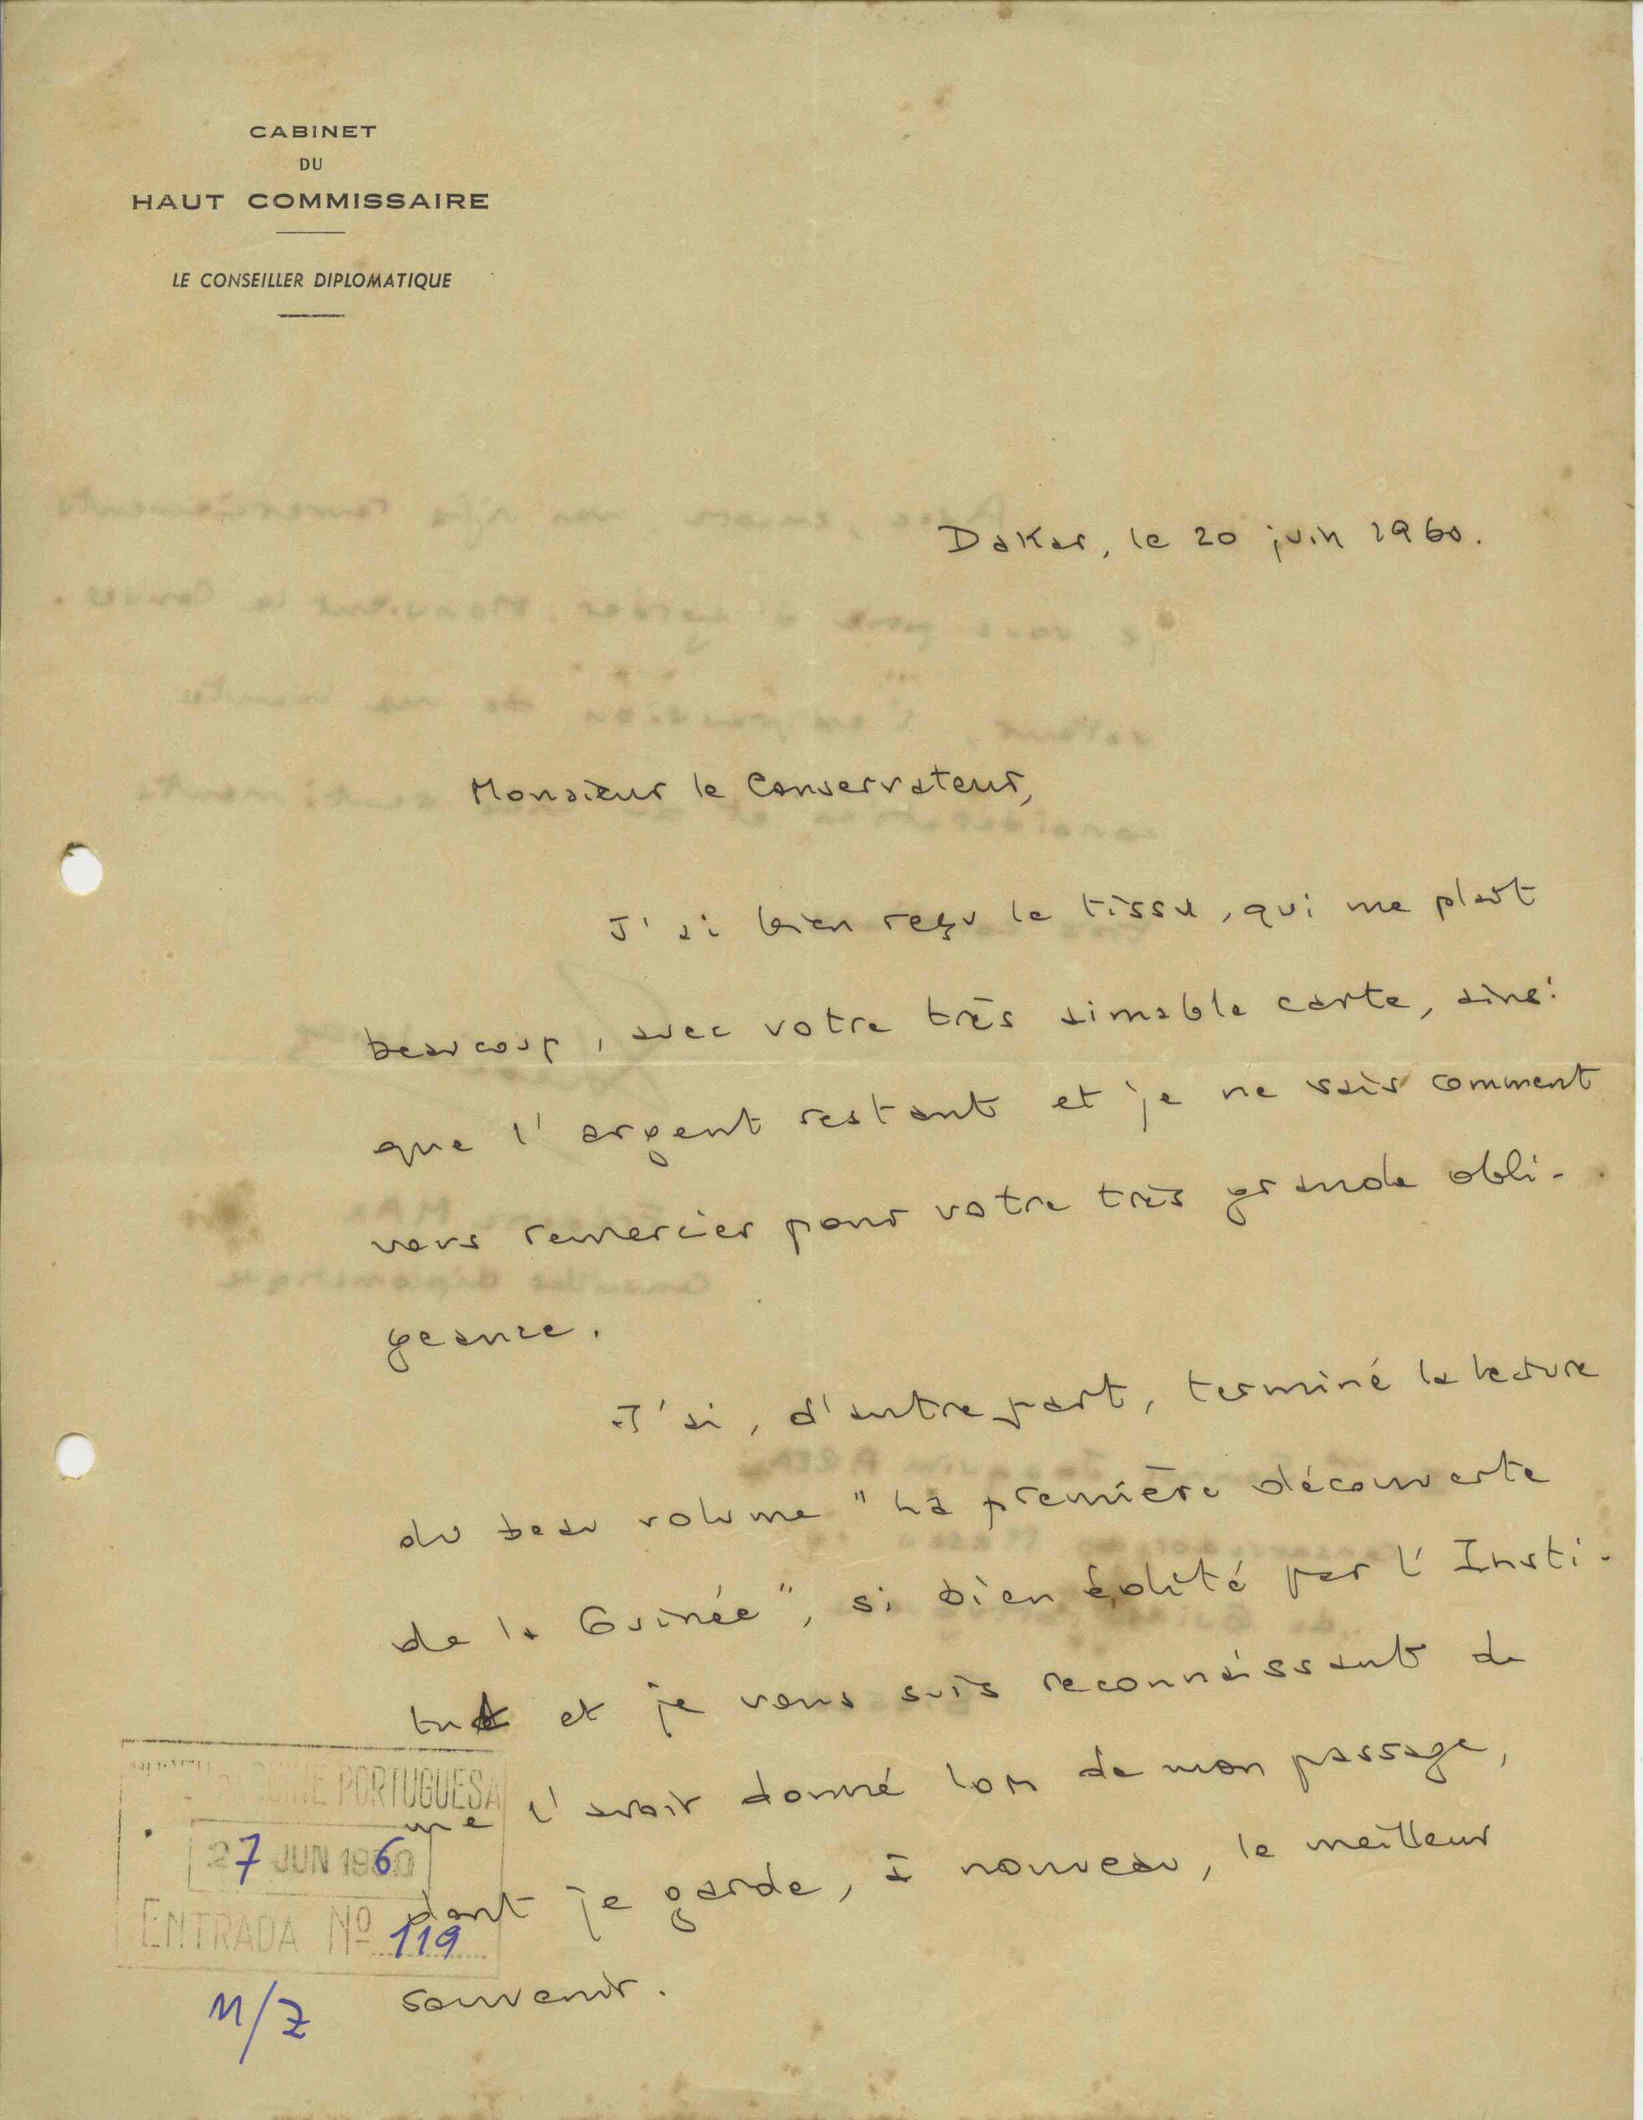 CABINET
DU
HAUT COMMISSAIRE
LE CONSEILLER DIPLOMATIQUE
Dakar, le 20 juin 1960.
Monsieur le Conservateur,
J'ai bien reçu le tissu, qui me plaît
beaucoup, avec votre très aimable carte, ainsi
que l'argent restant et je ne sais comment
vous remercier pour votre très grande obli-
geance.
J'ai, d'autre part, terminé la lecture
du beau volume "La première découverte
de la Guinée", si bien édité par l'Insti-
tut et je vous suis reconnaissant de
me l'avoir donné lors de mon passage,
dont je garde, à nouveau, le meilleur
souvenir.
PORTUGUESA
27 JUN 1960
ENTRADA Nº 119
M/Z